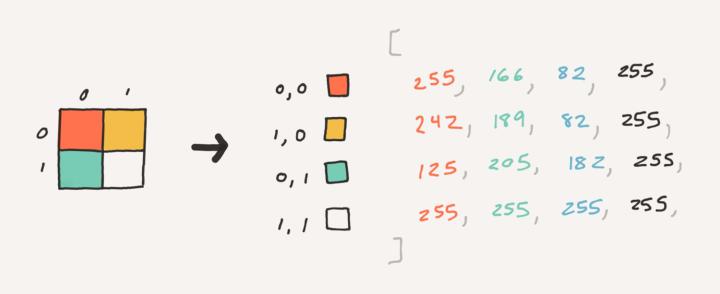 [
0 1
0
1
0,0
1,0
0,1
1,1
255, 166, 82, 255,
242, 189, 82, 255,
125, 205, 182, 255,
255, 255, 255, 255,
]